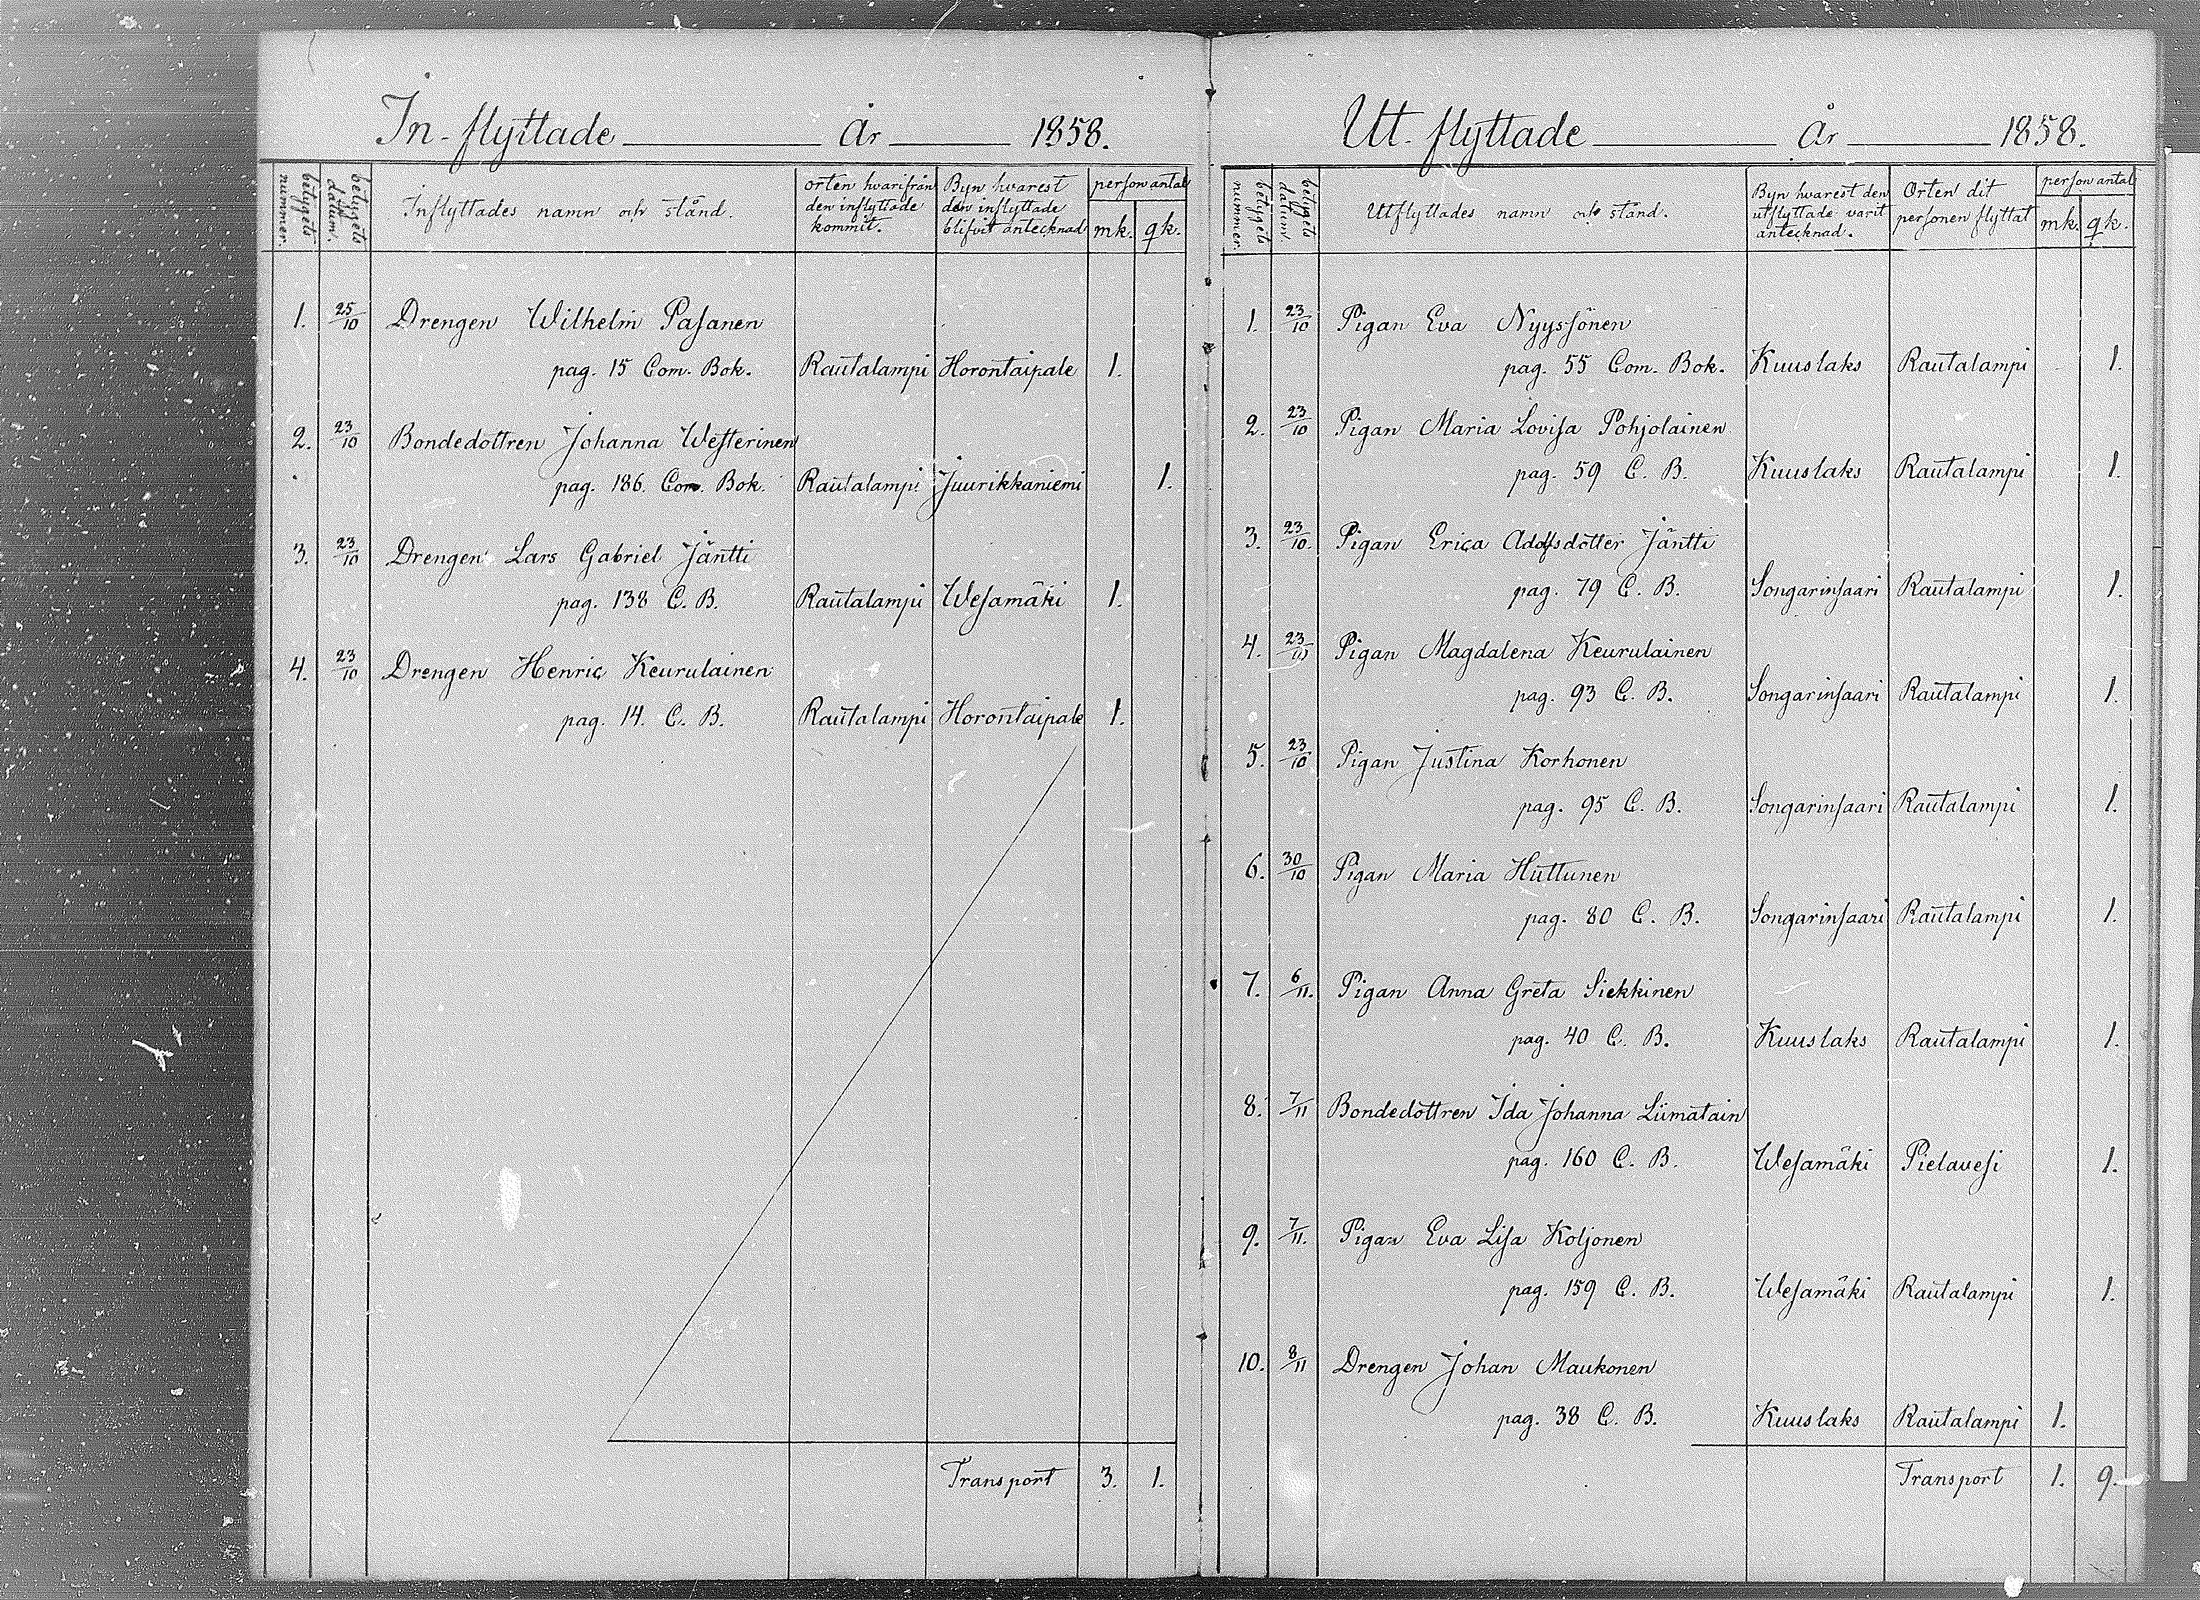 In-flyttade År 1858.
betygets nummer.
betygets datum.
Inflyttades namn och stånd.
orten hvarifrån den inflyttade kommit.
Byn hvarest den inflyttade blifvit antecknad
person antal
mk. qk.
1. 25/10 Drengen Wilhelm Pasanen
pag. 15 Com. Bok. Rautalampi Horontaipale 1.
2. 23/10 Bondedottren Johanna Westerinen
pag. 186. Com. Bok. Rautalampi Juurikkaniemi 1.
3. 23/10 Drengen Lars Gabriel Jäntti
pag. 138 C. B. Rautalampi Wesamäki 1.
4. 23/10 Drengen Henric Keurulainen
pag. 14. C. B. Rautalampi Horontaipale 1.
Transport 3. 1.
Ut-flyttade År 1858.
betygets nummer.
betygets datum.
Utflyttades namn och stånd.
Byn hvarest den utflyttade varit antecknad.
Orten dit personen flyttat
person antal
mk. qk.
1. 23/10 Pigan Eva Nyyssönen
pag. 55 Com. Bok. Kuuslaks Rautalampi 1.
2. 23/10 Pigan Maria Lovisa Pohjolainen
pag. 59 C. B. Kuuslaks Rautalampi 1.
3. 23/10. Pigan Erica Adolfsdotter Jäntti
pag. 79 C. B. Songarinsaari Rautalampi 1.
4. 23/10 Pigan Magdalena Keurulainen
pag. 93 C. B. Songarinsaari Rautalampi 1.
5. 23/10 Pigan Justina Korhonen
pag. 95 C. B. Songarinsaari Rautalampi 1.
6. 30/10 Pigan Maria Huttunen
pag. 80 C. B. Songarinsaari Rautalampi 1.
7. 6/11. Pigan Anna Greta Siekkinen
pag. 40 C. B. Kuuslaks Rautalampi 1.
8. 7/11 Bondedottren Ida Johanna Liimatain
pag. 160 C. B. Wesamäki Pielavesi 1.
9. 7/11. Pigan Eva Lisa Koljonen
pag. 159 C. B. Wesamäki Rautalampi 1.
10. 8/11 Drengen Johan Maukonen
pag. 38 C. B. Kuuslaks Rautalampi 1.
Transport 1. 9.